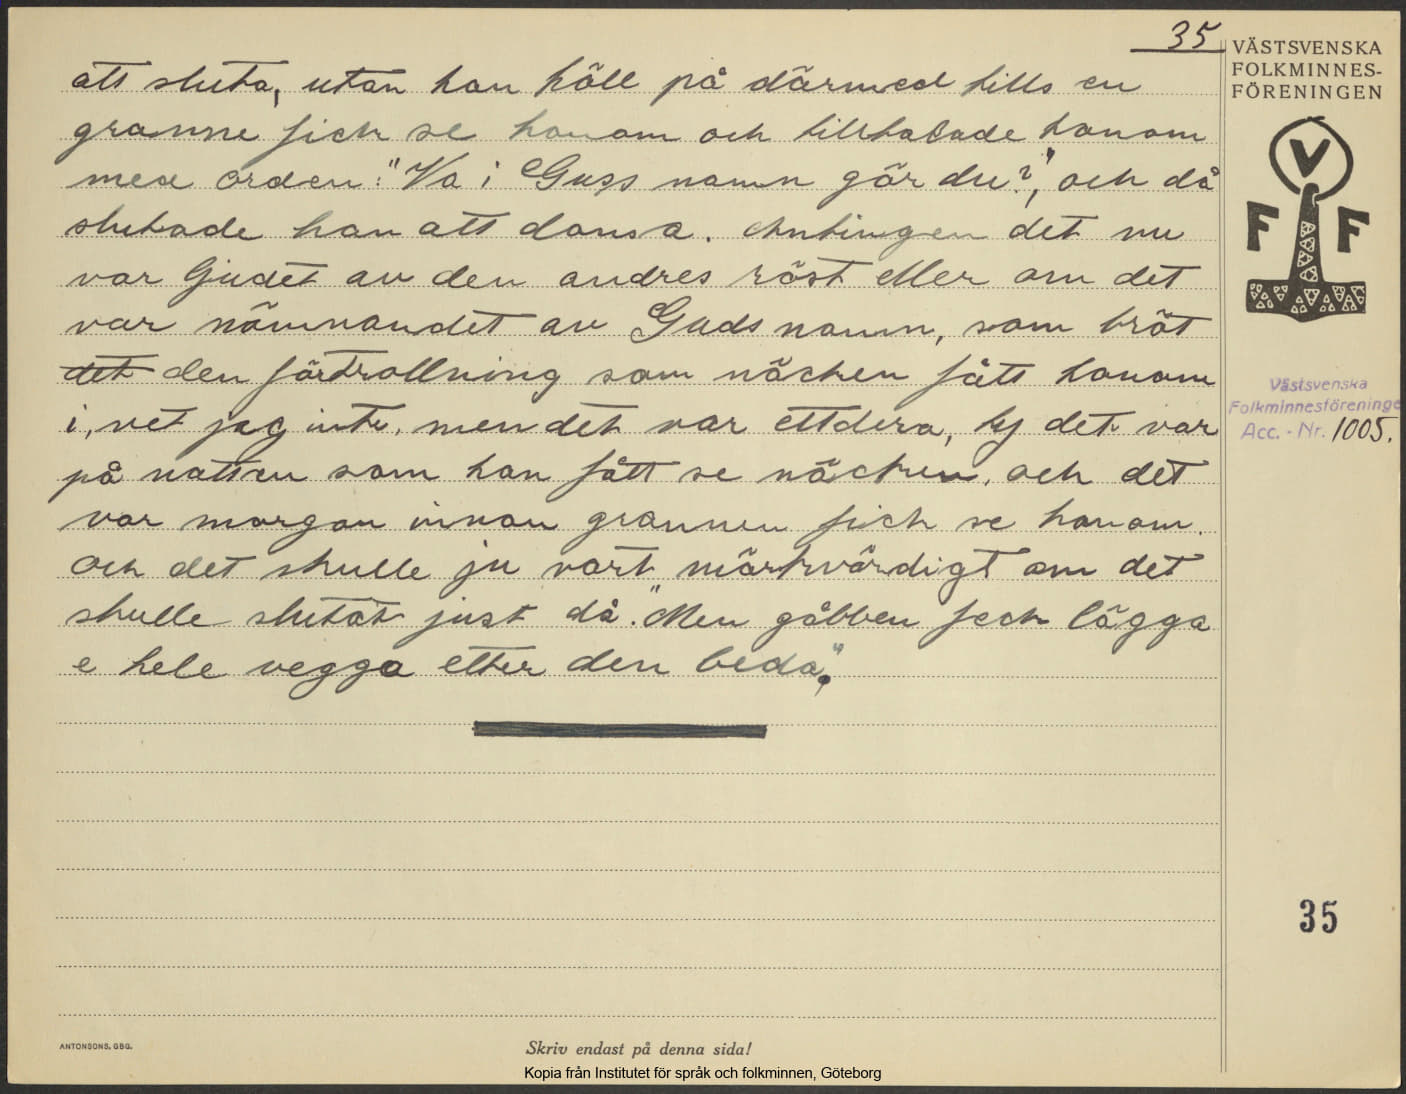 35
att sluta, utan han höll på därmed tills en
granne fick se honom och tilltalade honom
med orden: "Va i Guss namn gör du?", och då
slutade han att dansa. Antingen det nu
var ljudet av den andres röst eller om det
var nämnandet av Guds namn, som bröt
det den förtrollning som näcken fått honom
i, vet jag inte, men det var ettdera, ty det var
på natten som han fått se näcken, och det
var morgon innan grannen fick se honom.
Och det skulle ju vart märkvärdigt om det
skulle slutat just då. "Men gåbben feck lägga
e hele vegga etter den beda".
VÄSTSVENSKA
FOLKMINNES-
FÖRENINGEN
V
F F
Västsvenska
Folkminnesföreninge
Acc. - Nr. 1005.
35
ANTONSONS, GBG.
Skriv endast på denna sida!
Kopia från Institutet för språk och folkminnen, Göteborg